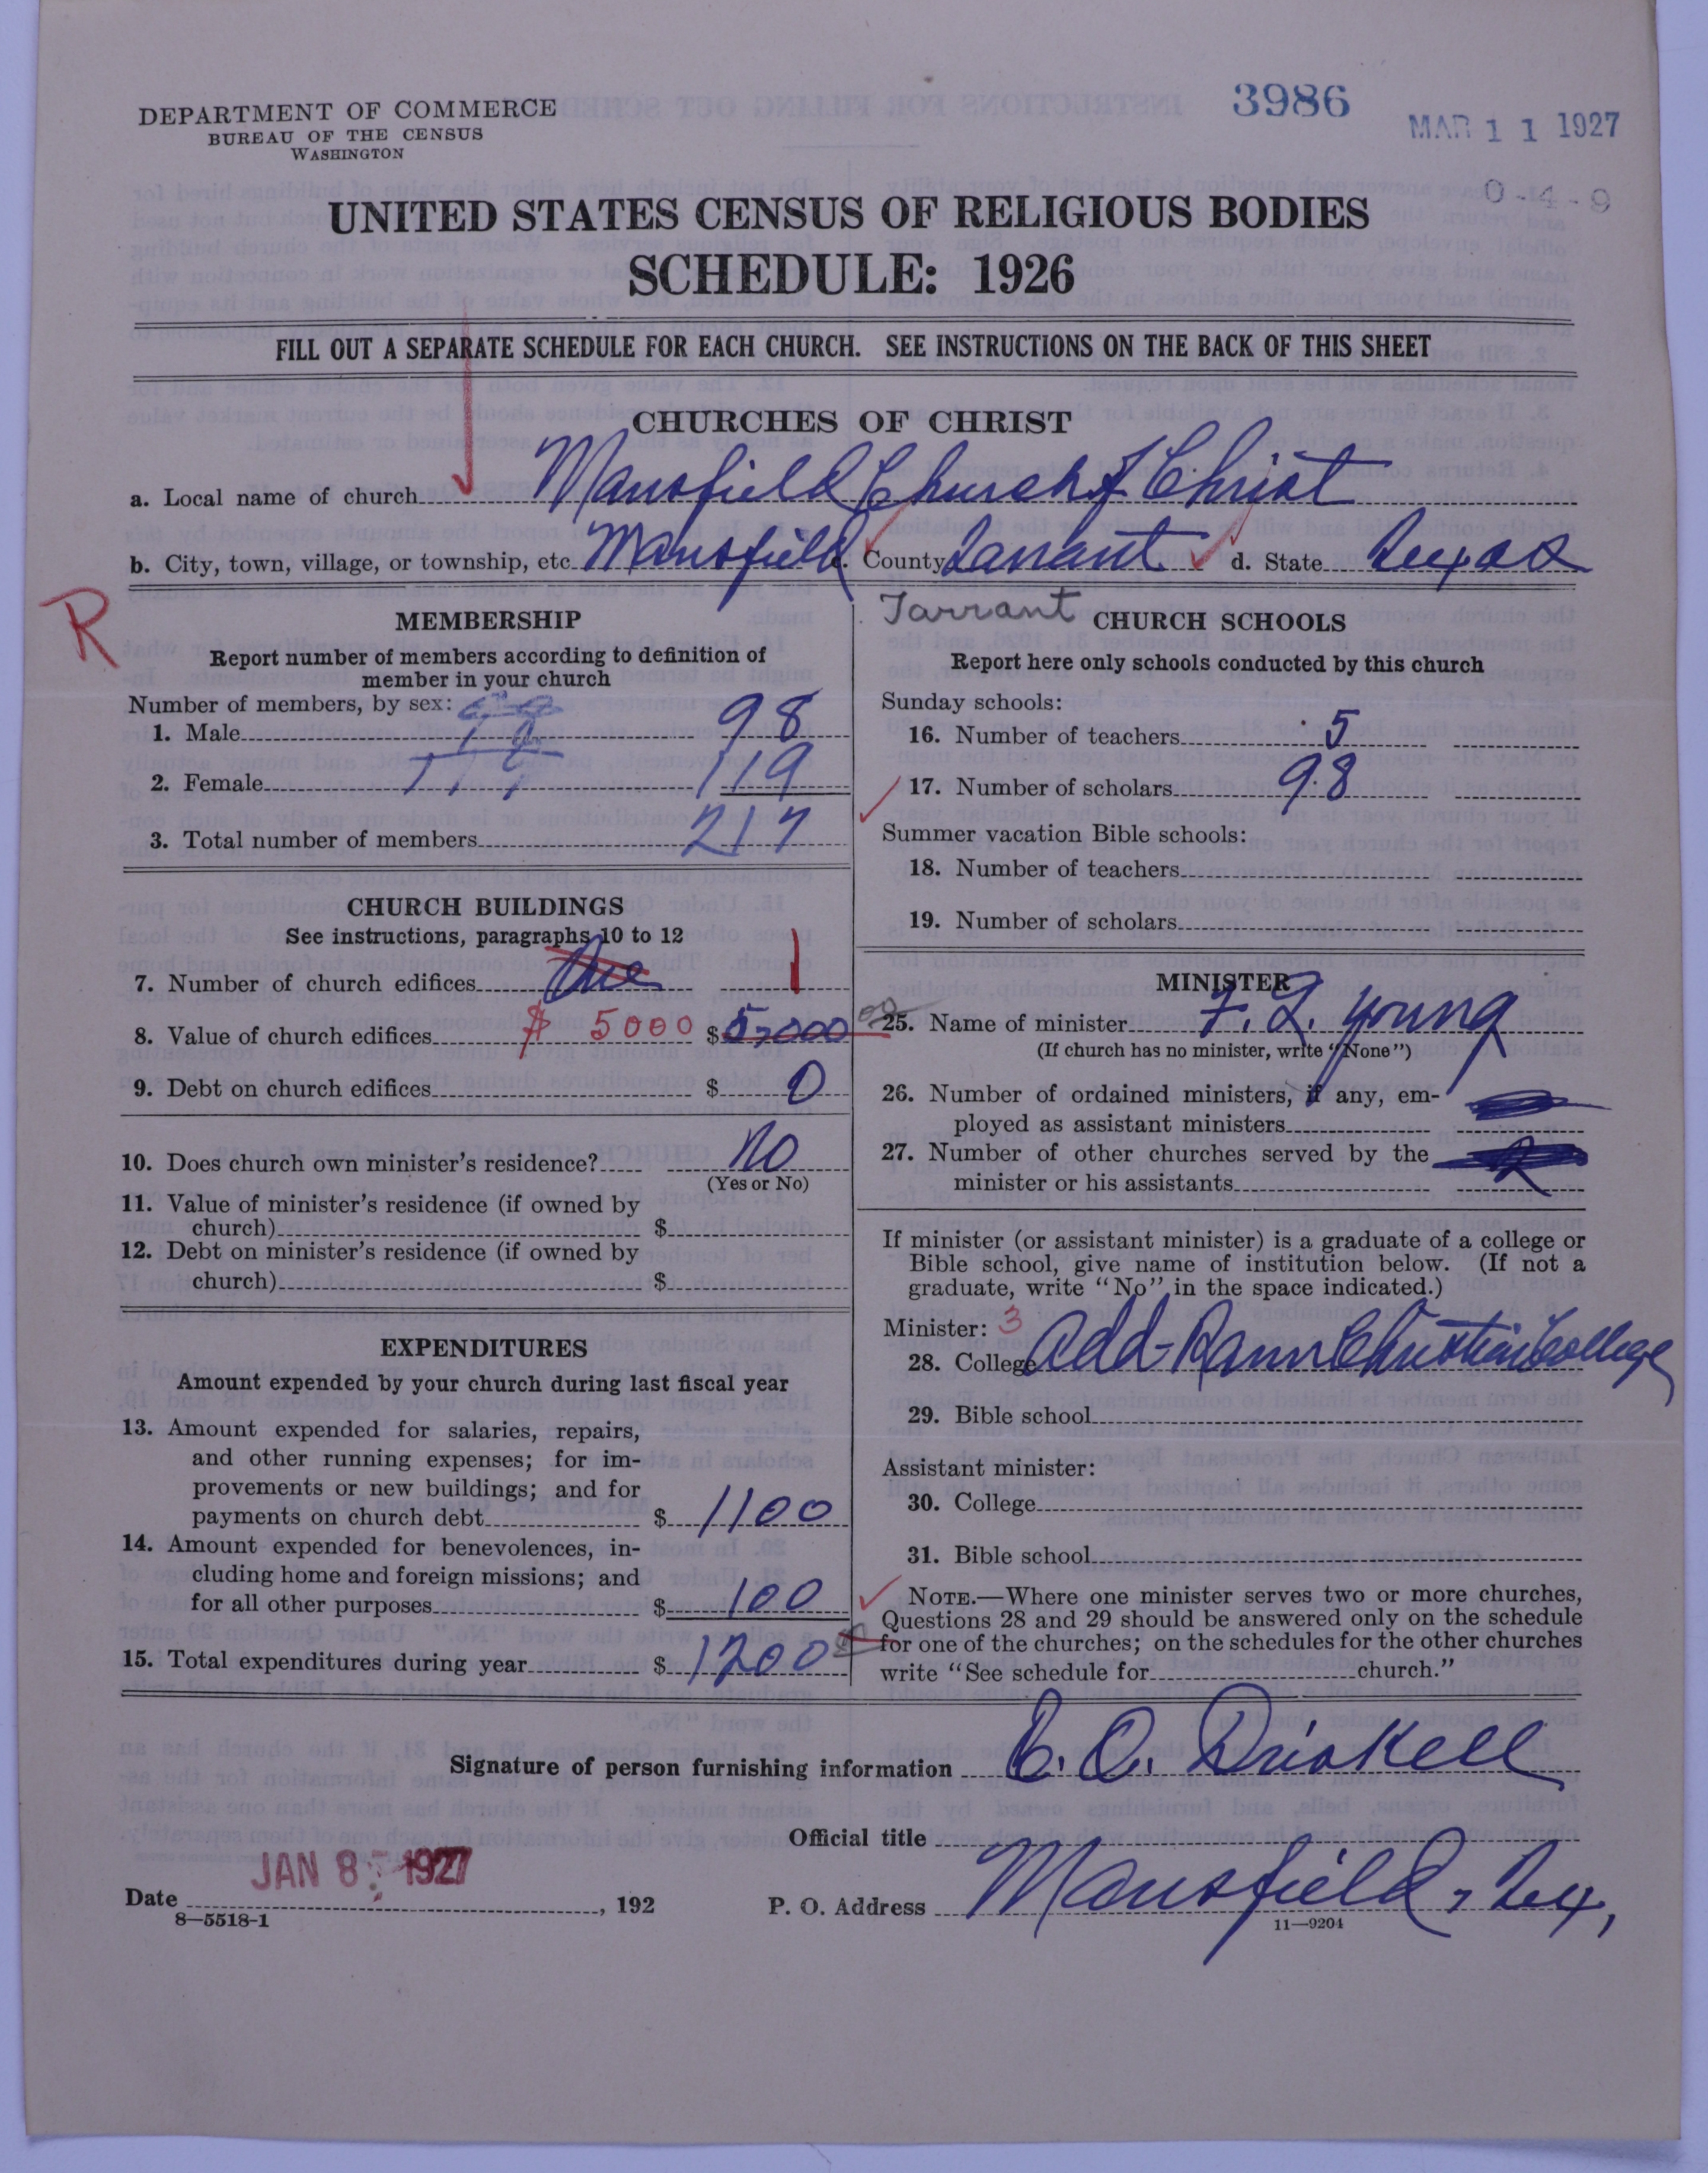 DEPARTMENT OF COMMERCE
BUREAU OF THE CENSUS
WASHINGTON
3986
MAR 11 1927
0-4-9
UNITED STATES CENSUS OF RELIGIOUS BODIES
SCHEDULE: 1926
FILL OUT A SEPARATE SCHEDULE FOR EACH CHURCH. SEE INSTRUCTIONS ON THE BACK OF THIS SHEET
CHURCHES OF CHRIST
a. Local name of church Mansfield Church of Christ
b. City, town, village, or township, etc. Mansfield c. County Tarrant d. State Texas
R
MEMBERSHIP
Report number of members according to definition of
member in your church
Number of members, by sex:
1. Male 98
2. Female 119 119
3. Total number of members 217
CHURCH BUILDINGS
See instructions, paragraphs 10 to 12
7. Number of church edifices One 1
8. Value of church edifices $ 5000 $ 5,000 00
9. Debt on church edifices $ 0
10. Does church own minister's residence? No
(Yes or No)
11. Value of minister's residence (if owned by
church) $
12. Debt on minister's residence (if owned by
church) $
EXPENDITURES
Amount expended by your church during last fiscal year
13. Amount expended for salaries, repairs,
and other running expenses; for im-
provements or new buildings; and for
payments on church debt $ 1100
14. Amount expended for benevolences, in-
cluding home and foreign missions; and
for all other purposes $ 100
15. Total expenditures during year $ 1200 00
Tarrant
CHURCH SCHOOLS
Report here only schools conducted by this church
Sunday schools:
16. Number of teachers 5
17. Number of scholars 98
Summer vacation Bible schools:
18. Number of teachers
19. Number of scholars
MINISTER
25. Name of minister F. L. Young
(If church has no minister, write "None")
26. Number of ordained ministers, if any, em-
ployed as assistant ministers
27. Number of other churches served by the
minister or his assistants
If minister (or assistant minister) is a graduate of a college or
Bible school, give name of institution below. (If not a
graduate, write "No" in the space indicated.)
Minister: 3
28. College Add-Rann Christian College
29. Bible school
Assistant minister:
30. College
31. Bible school
NOTE.—Where one minister serves two or more churches,
Questions 28 and 29 should be answered only on the schedule
for one of the churches; on the schedules for the other churches
write "See schedule for church."
Signature of person furnishing information C. O. Driskell
Official title
JAN 8 1927
Date , 192
P. O. Address Mansfield, Tex,
8—5518-1
11—9204